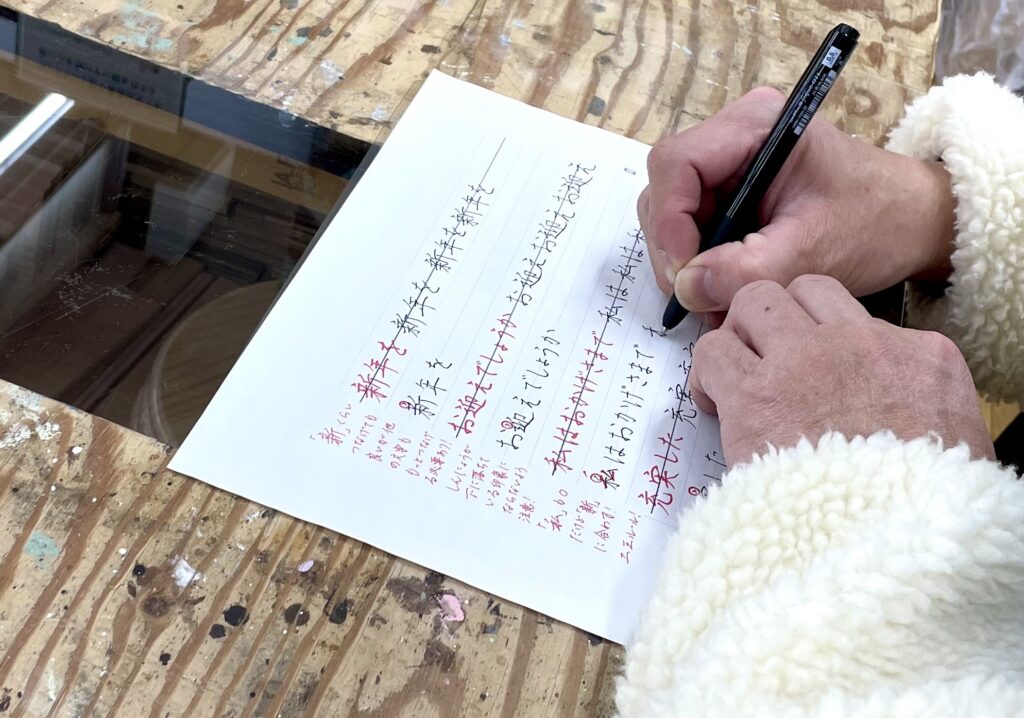 新年を新年を新年を新年を
新年を
お迎えでしょうかお迎えお迎えお迎え
お迎えでしょうか
私はおかげさまで私は私は
私はおかげさまで
充実した充実
した
「新」くらい
つなげても
良いが他
の文字も
しんにょうが
下に落ちて
いる印象に
ならないよう
注意!
だけど「新」
に合わす!
0.5